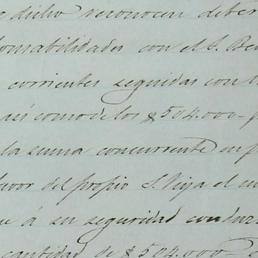 dicho reconocen deber
con el S. Be
corrientes seguidas con
asi como de los $504.000-
la suma concurrente en
favor del propio S. Vega el
á su seguridad
cantidad de $504.000-